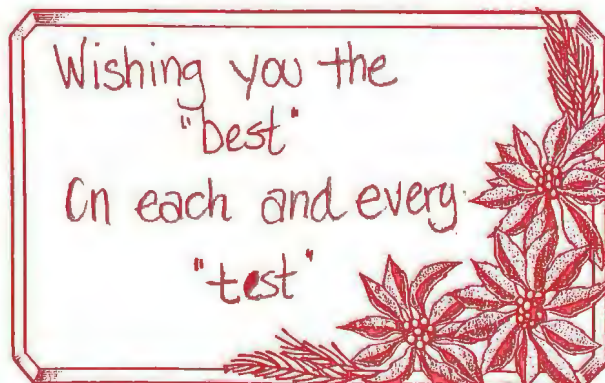 Wishing you the
"best"
On each and every
"test"